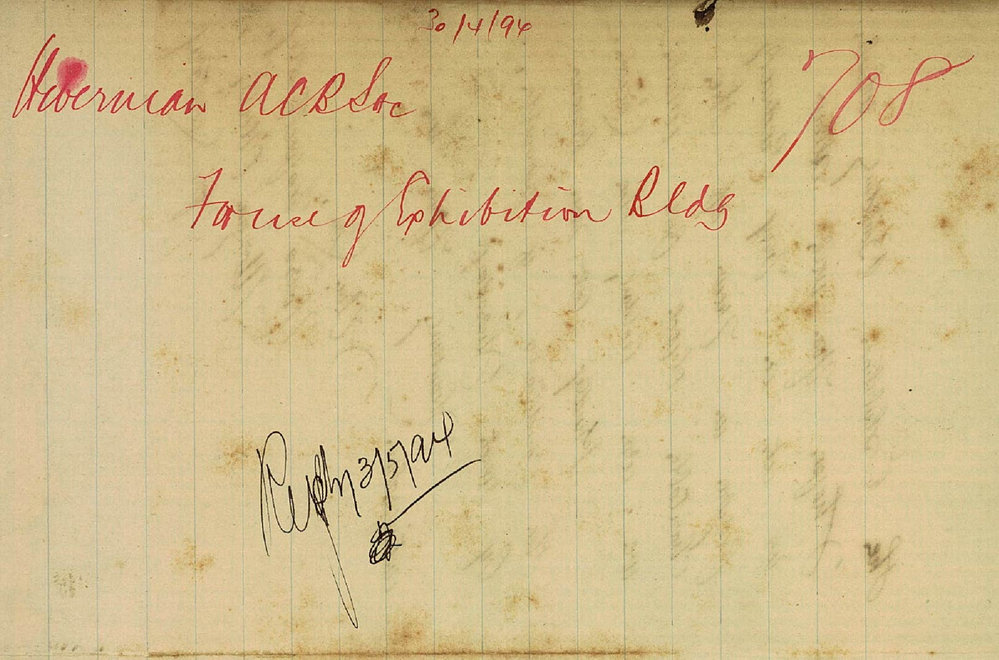 30/4/94
Hibernian ACB Soc
708
For use of Exhibition Bldg
Reply 3/5/94